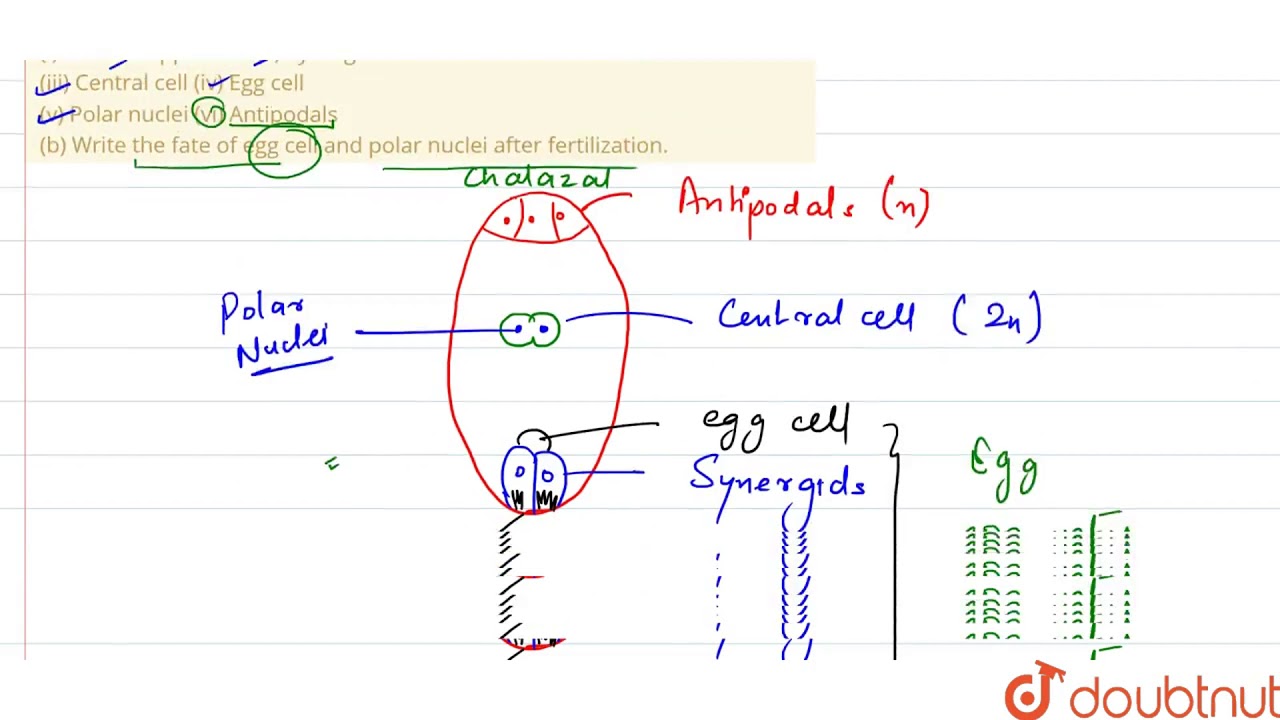 (iii) Central cell (iv) Egg cell
(v) Polar nuclei (vi) Antipodals
(b) Write the fate of egg cell and polar nuclei after fertilization.
Chalazal
Antipodals (n)
Polar
Nuclei
Central cell (2n)
egg cell
Synergids
Egg
doubtnut